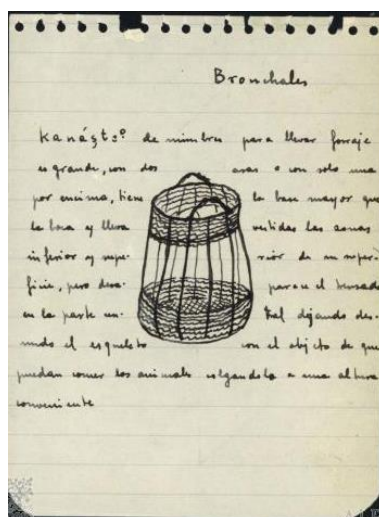 Bronchales
kanásto de mimbres para llevar forraje
es grande, con dos asas o con solo una
por encima, tiene la base mayor que
la boca y lleva vestidas las zonas
inferior y supe- rior de su super-
ficie, pero desa- parece el trensado
en la parte cen- tral dejando des-
nudo el esqueleto con el objeto de que
puedan comer los animales colgandola a una altura
conveniente